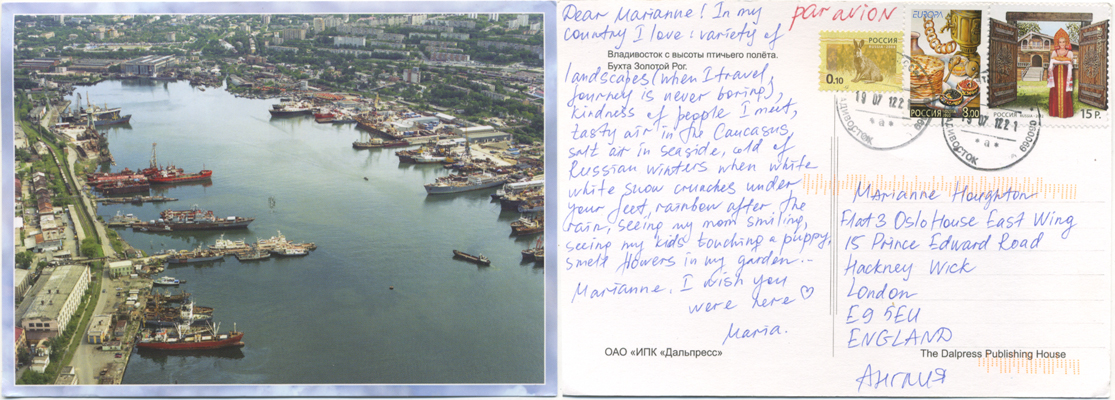 Dear Marianne! In my
country I love: variety of
Владивосток с высоты птичьего полёта.
Бухта Золотой Рог.
landscapes (when I travel,
journey is never boring),
kindness of people I meet,
tasty air in the Caucasus,
salt air in seaside, cold of
Russian winters when white
white snow crunches under
your feet, rainbow after the
rain, seeing my mom smiling,
seeing my kids touching a puppy,
smell flowers in my garden...
Marianne, I wish you
were here ♡
Maria.
ОАО «ИПК «Дальпресс»
par avion
РОССИЯ
0.10
EUROPA
РОССИЯ
8.00
РОССИЯ
15 Р.
19 07 12 21
ВЛАДИВОСТОК
19 07 12 21
ВЛАДИВОСТОК
690069
Marianne Houghton
Flat 3 Oslo House East Wing
15 Prince Edward Road
Hackney Wick
London
E9 5EU
ENGLAND
The Dalpress Publishing House
Англия